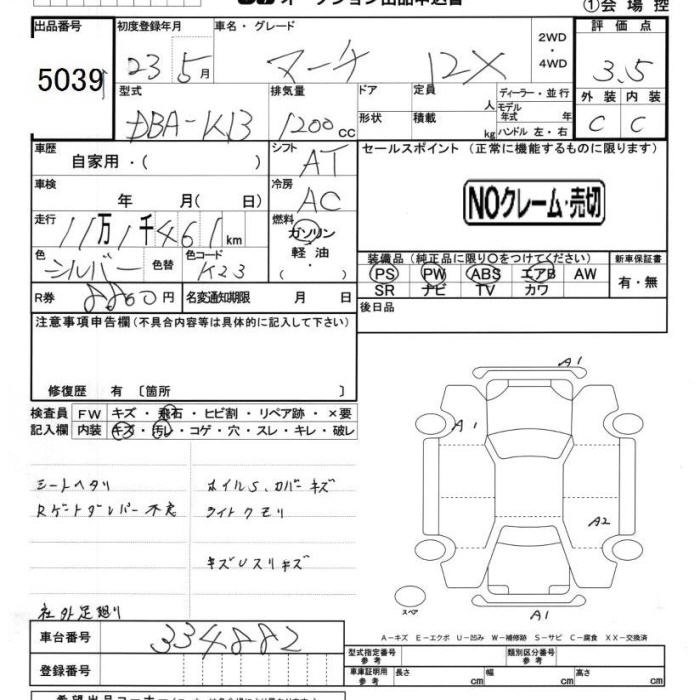 オークション出品申込書
①会場控
出品番号 初度登録年月 車名・グレード 2WD ・ 4WD 評価点
5039 23 5月 マーチ 12X 3.5
型式 排気量 ドア 定員 人 ディーラー・並行 外装 内装
DBA-K13 1200cc 形状 積載 kg モデル年式 年 ハンドル 左・右 C C
車歴 自家用・( ) シフト AT セールスポイント (正常に機能するものに限ります)
車検 年 月( 日) 冷房 AC NOクレーム・売切
走行 11万1千461km 燃料 ガソリン 軽油 ・( )
色 シルバー 色替 色コード K23
装備品(純正品に限り○をつけてください) 新車保証書
PS PW ABS エアB AW 有・無
SR ナビ TV カワ
R券 8860円 名変通知期限 月 日
後日品
注意事項申告欄(不具合内容等は具体的に記入して下さい)
修復歴 有 〔箇所 〕
検査員 FW キズ・飛石・ヒビ割・リペア跡・×要
記入欄 内装 キズ・汚レ・コゲ・穴・スレ・キレ・破レ
シートヘタリ ホイルS、カバーキズ
Rゲートダンパー不良 ライトクモリ
キズUスリキズ
社外足廻り
A1
A1
A2
スペア A1
A-キズ E-エクボ U-凹み W-補修跡 S-サビ C-腐食 XX-交換済
車台番号 334882
型式指定番号 参考 類別区分番号 参考
登録番号 車庫証明用 参考 長さ cm 幅 cm 高さ cm